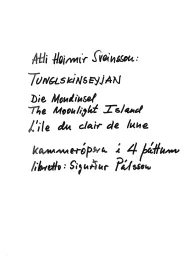 Atli Heimir Sveinsson:
TUNGLSKINSEYJAN
Die Mondinsel
The Moonlight Island
L'île du clair de lune
kammerópera í 4 þáttum
libretto: Sigurður Pálsson